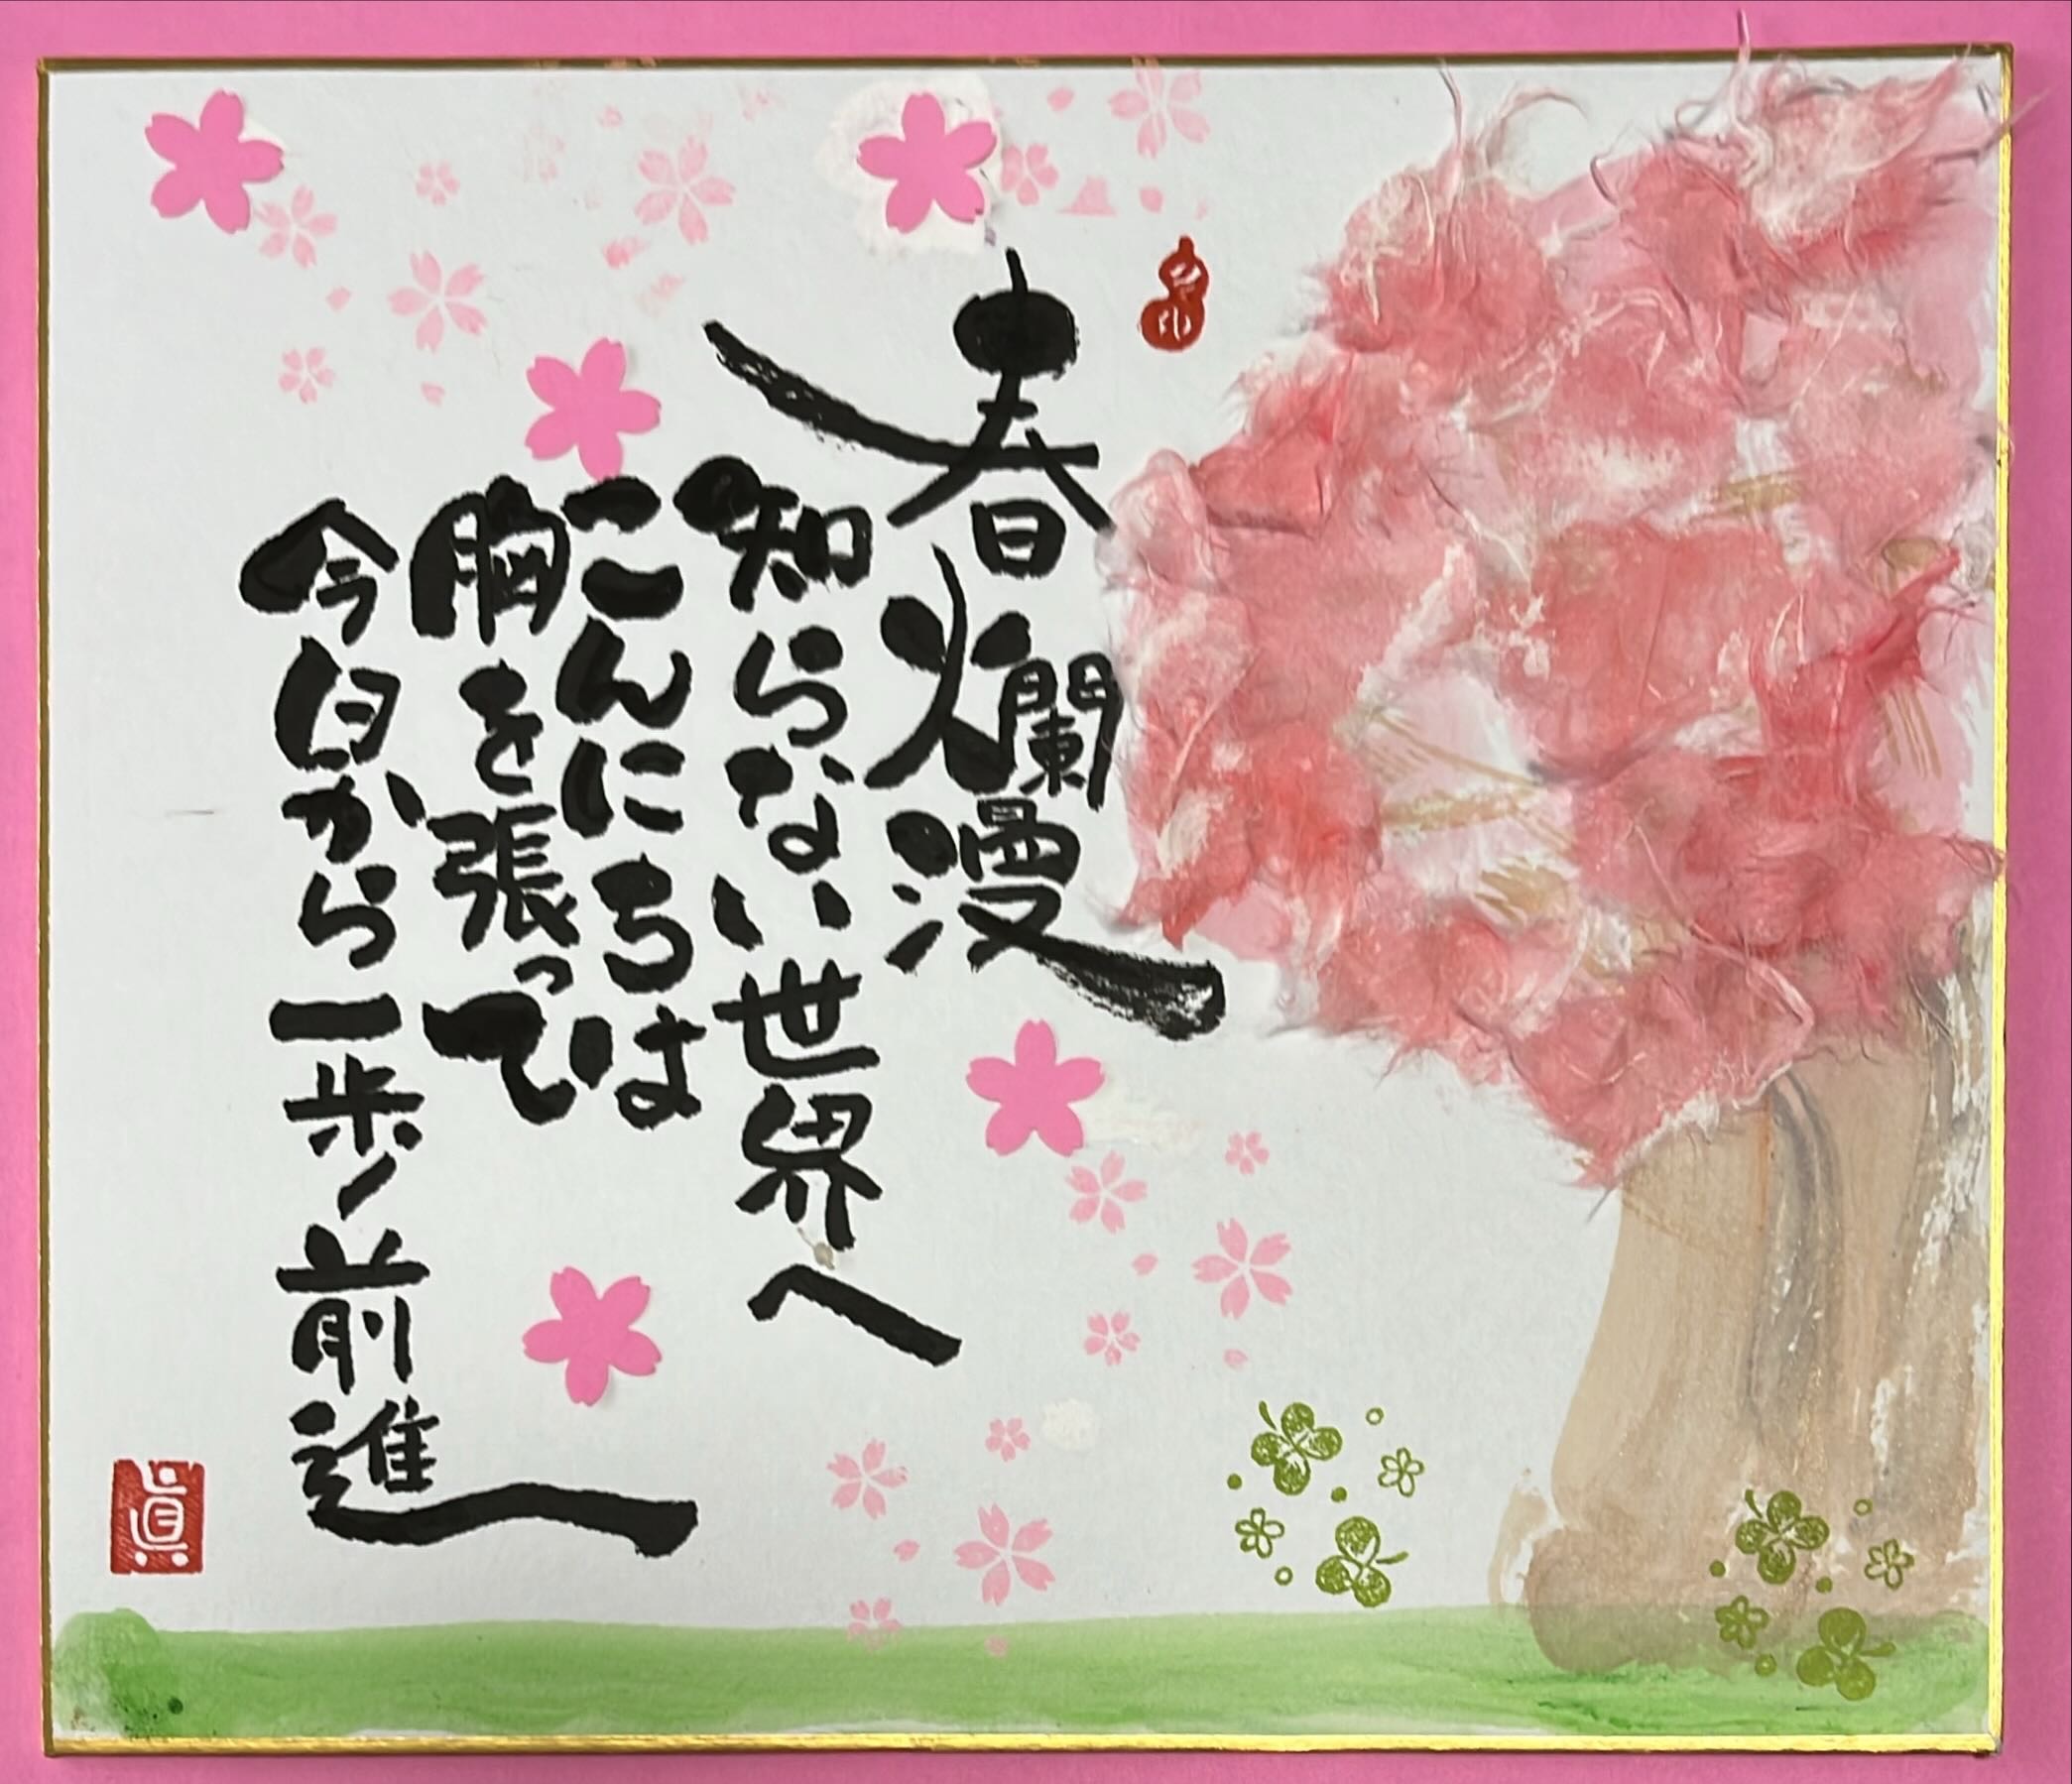 春爛漫
知らない世界へ
こんにちは
胸を張って
今日から一歩前進
眞